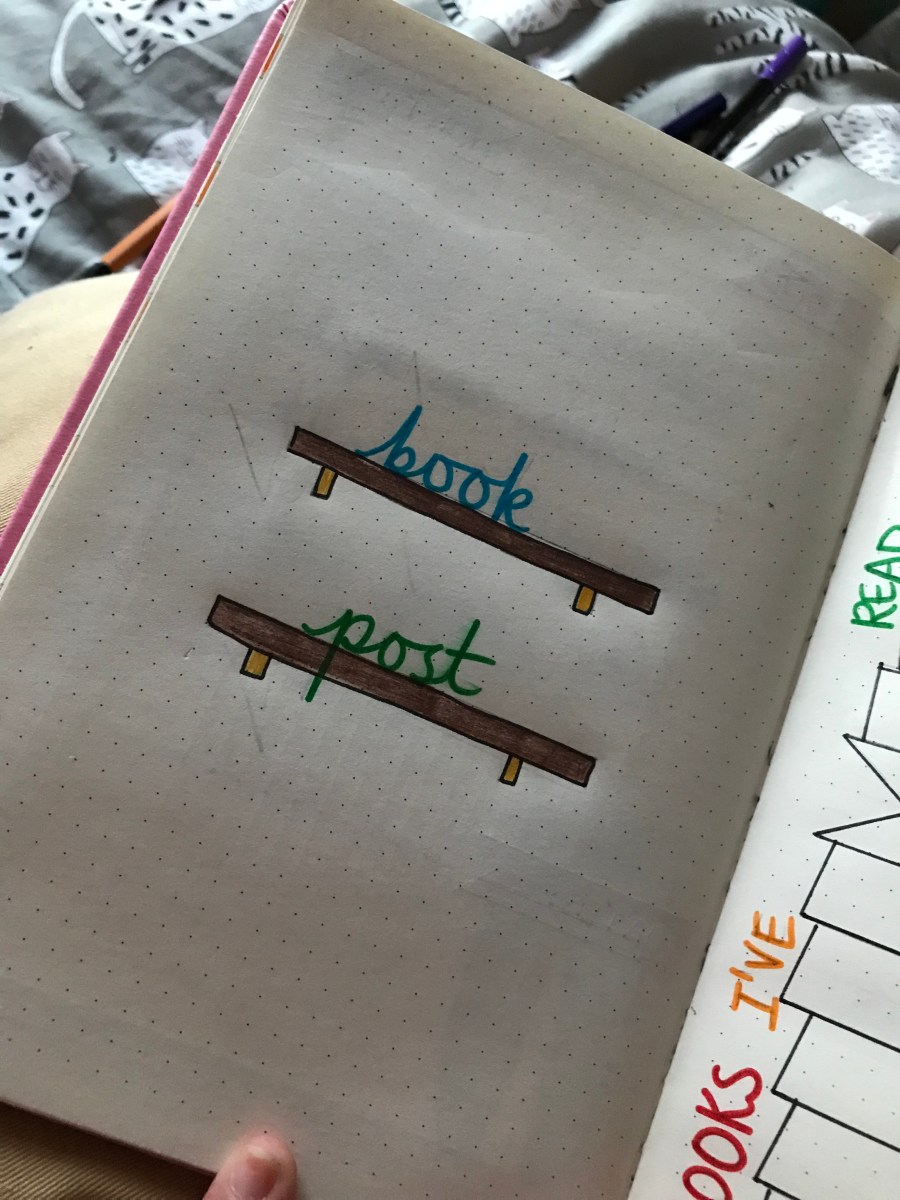 book
post
OOKS I'VE READ